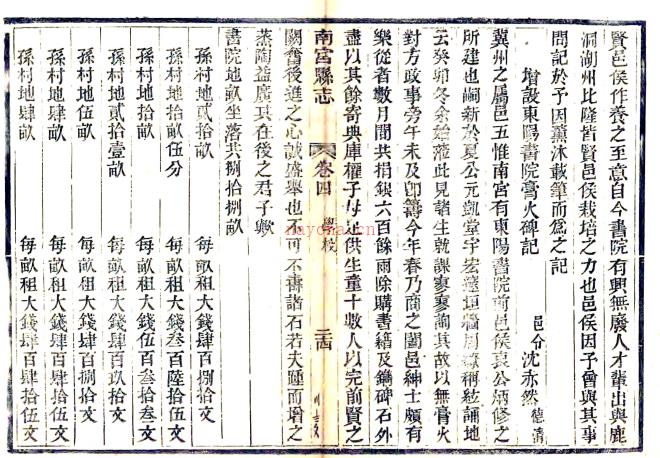 賢邑侯作養之至意自今書院有興無廢人才輩出與鹿
洞湖州比隆皆賢邑侯栽培之力也邑侯因予曾與其事
問記於予因薰沐載筆而為之記
增設東陽書院膏火碑記
邑令沈亦然德清
冀州之屬邑五惟南宮有東陽書院前邑侯袁公炳修之
所建也嗣新於夏公元凱堂宇宏達垣牆周繚稱絃誦地
云癸卯冬余始蒞此見諸生執課寥寥詢其故以無膏火
對方政事旁午未及卽籌今年春乃商之闔邑紳士頗有
樂從者數月間共捐銀六百餘兩除購書籍及鐫碑石外
盡以其餘寄典庫權子母足供生童十數人以完前賢之
南宮縣志
卷四
學校
二十四
闕奮後進之心誠盛舉也不可不壽諸石若夫踵而增之
蒸陶益廣其在後之君子歟
書院地畝坐落共捌拾捌畝
孫村地貳拾畝
每畝租大錢肆百捌拾文
孫村地拾畝伍分
每畝租大錢叁百陸拾伍文
孫村地拾畝
每畝租大錢伍百叁拾叁文
孫村地貳拾壹畝
每畝租大錢肆百玖拾文
孫村地伍畝
每畝租大錢肆百捌拾文
孫村地肆畝
每畝租大錢肆百肆拾伍文
孫村地肆畝
每畝租大錢肆百肆拾伍文